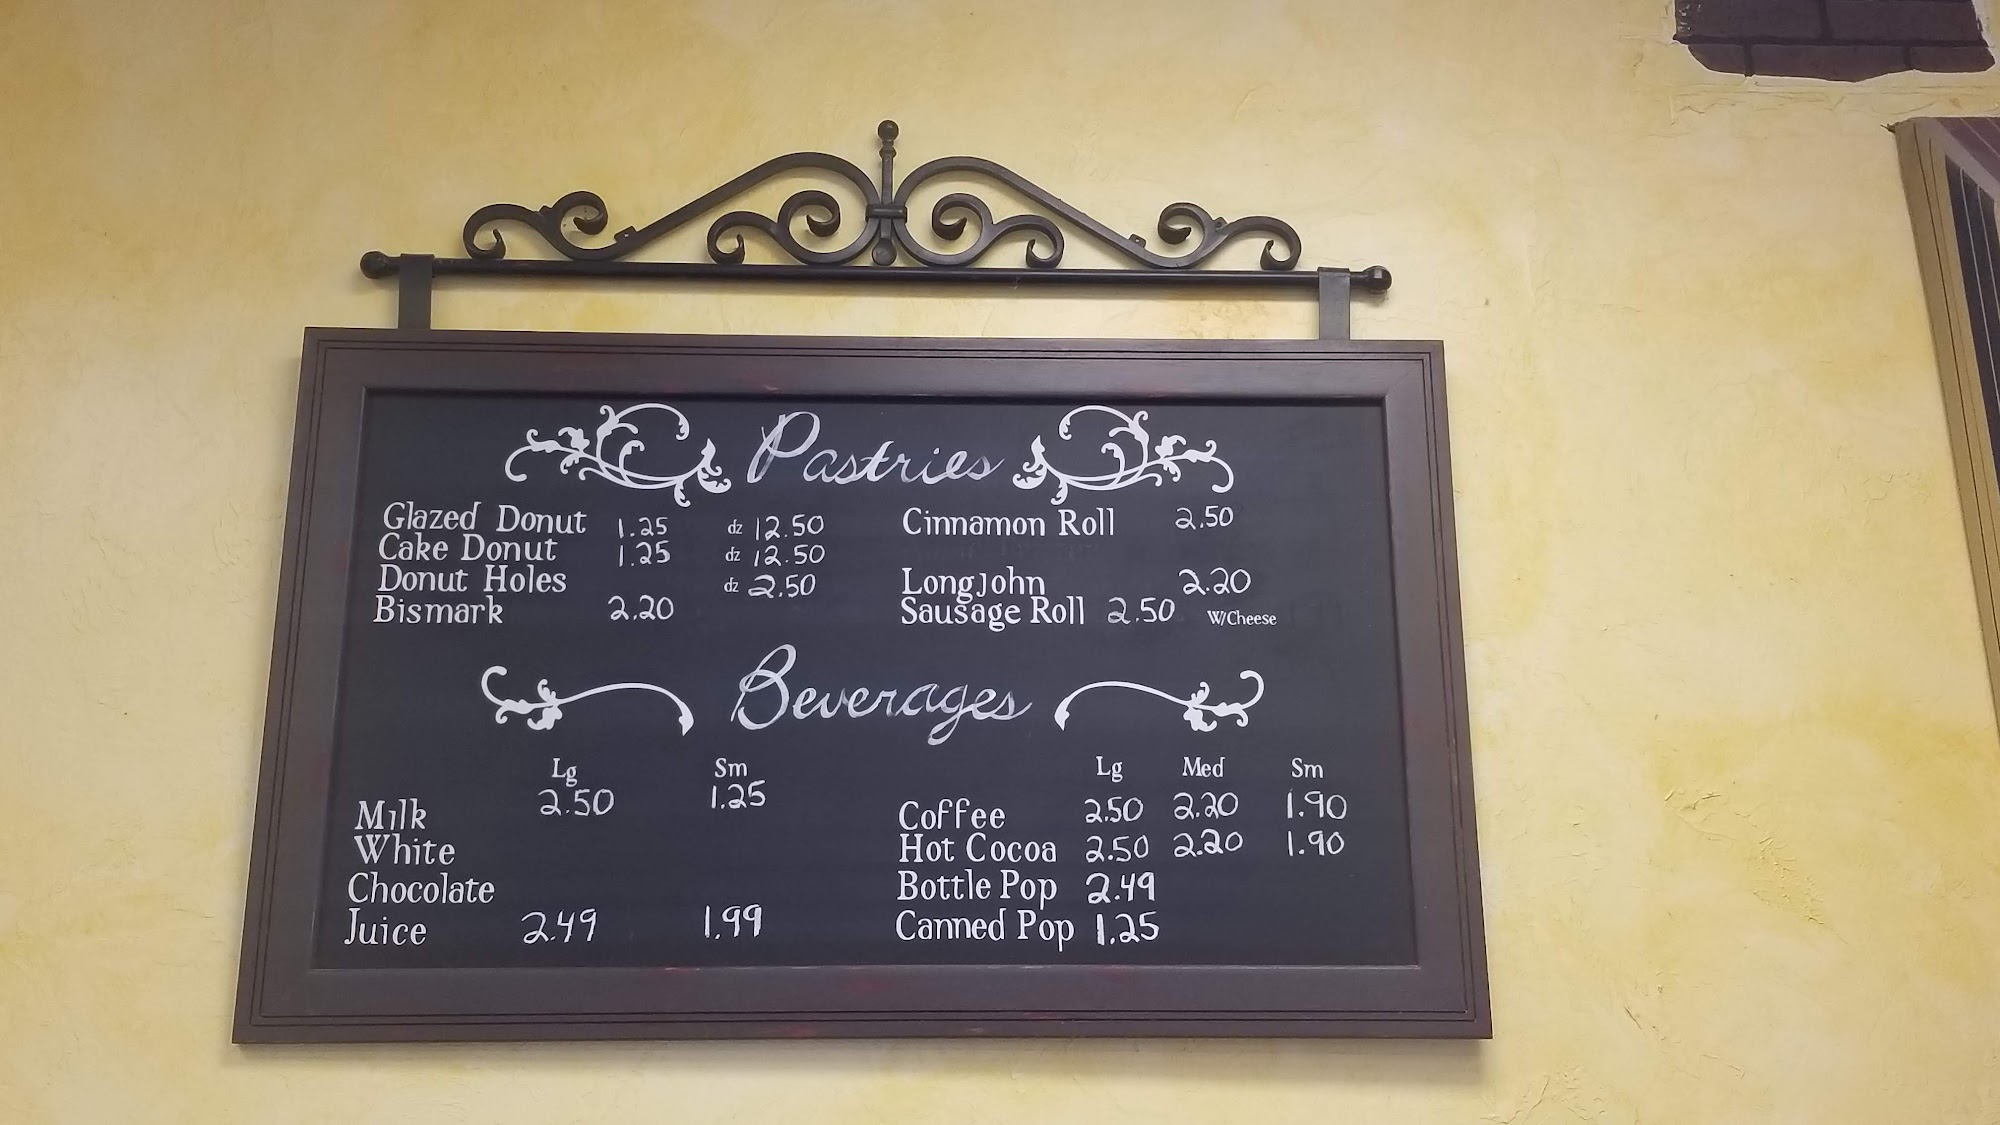 Pastries
Glazed Donut 1.25 dz 12.50
Cake Donut 1.25 dz 12.50
Donut Holes dz 2.50
Bismark 2.20
Cinnamon Roll 2.50
Longjohn 2.20
Sausage Roll 2.50 W/Cheese
Beverages
Lg Sm
Milk 2.50 1.25
White
Chocolate
Juice 2.49 1.99
Lg Med Sm
Coffee 2.50 2.20 1.90
Hot Cocoa 2.50 2.20 1.90
Bottle Pop 2.49
Canned Pop 1.25